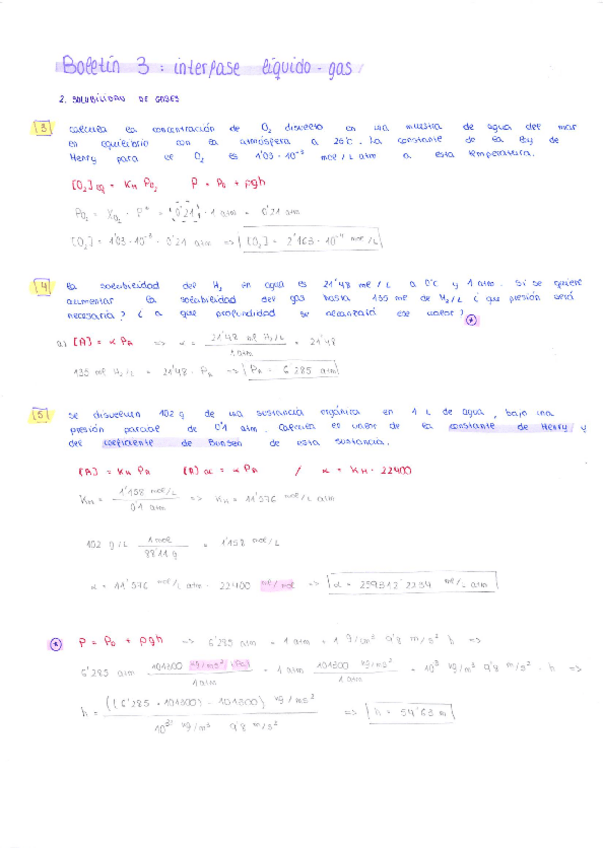 Boletín 3 : interfase líquido - gas
2. SOLUBILIDAD DE GASES
3 Calcula la concentración de O₂ disuelto en una muestra de agua del mar
en equilibrio con la atmósfera a 25°C. La constante de la ley de
Henry para el O₂ es 1'03·10⁻³ mol/L atm a esta temperatura.
[O₂]eq = KH PO₂ P = P₀ + ρgh
PO₂ = XO₂ · P* = 0'21 · 1 atm = 0'21 atm
[O₂] = 1'03·10⁻³ · 0'21 atm ⇒ [O₂] = 2'163·10⁻⁴ mol/L
4 La solubilidad del H₂ en agua es 21'48 ml/L a 0°C y 1 atm. Si se quiere
aumentar la solubilidad del gas hasta 135 ml de H₂/L ¿qué presión será
necesaria? ¿a qué profundidad se alcanzará ese valor? *
a) [A] = α PA ⇒ α = 21'48 ml H₂/L / 1 atm = 21'48
135 ml H₂/L = 21'48 · PA ⇒ PA = 6'285 atm
5 Se disuelven 102 g de una sustancia orgánica en 1 L de agua, bajo una
presión parcial de 0'1 atm. Calcula el valor de la constante de Henry y
del coeficiente de Bunsen de esta sustancia.
[A] = KH PA [A] = α PA / α = KH · 22400
KH = 1'158 mol/L / 0'1 atm ⇒ KH = 11'576 mol/L atm
102 g/L 1 mol / 88'11 g = 1'158 mol/L
α = 11'576 mol/L atm · 22400 ml/mol ⇒ α = 259312'2234 ml/L atm
* P = P₀ + ρgh ⇒ 6'285 atm = 1 atm + 1 g/cm³ 9'8 m/s² h ⇒
6'285 atm 101300 kg/ms² (Pa) / 1 atm = 1 atm 101300 kg/ms² / 1 atm = 10³ kg/m³ 9'8 m/s² · h ⇒
h = ((6'285 · 101300) - 101300) kg/ms² / 10³ kg/m³ 9'8 m/s² ⇒ h = 54'63 m